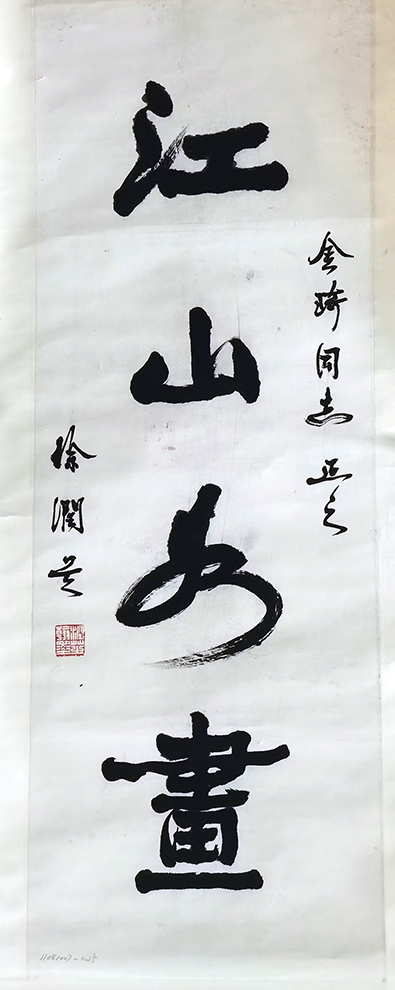 金琦同志正之
江山如畫
徐潤芝